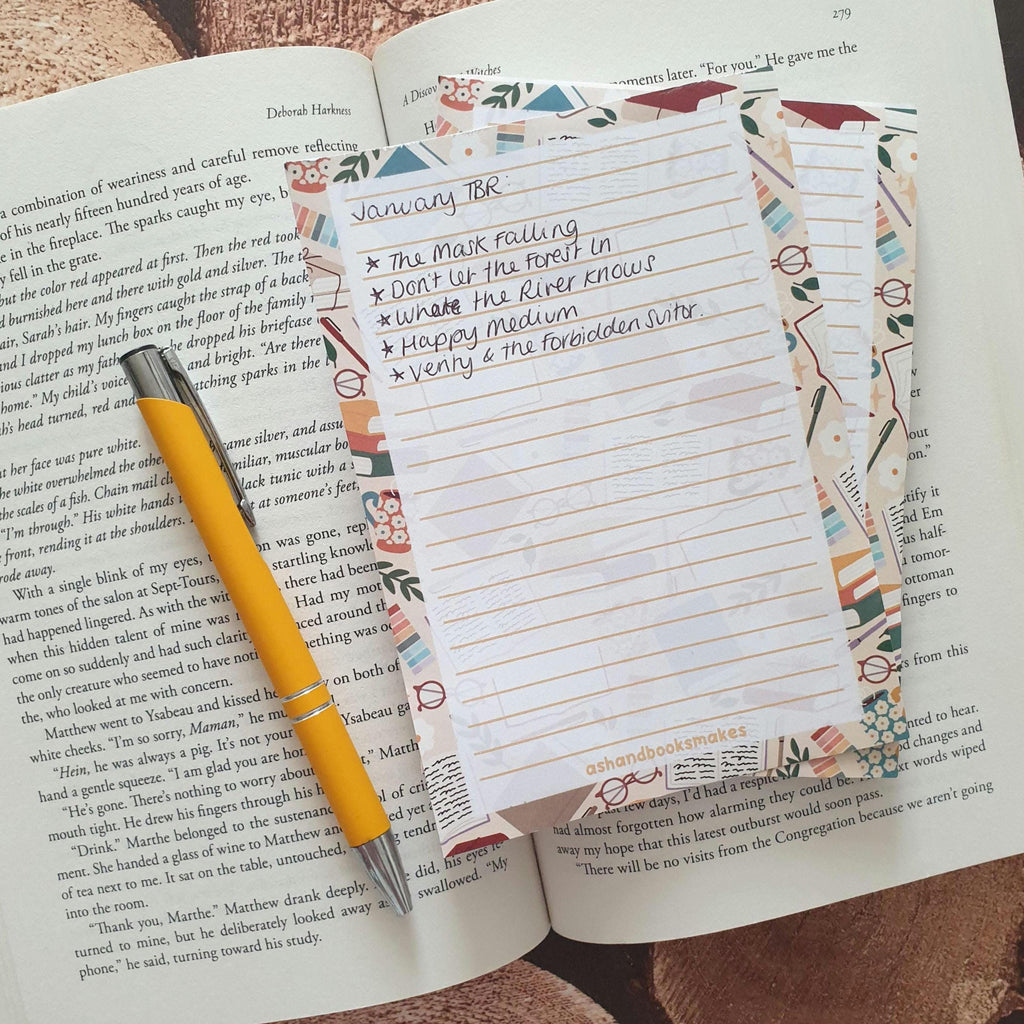 Deborah Harkness
a combination of weariness and careful remove reflecting
of his nearly fifteen hundred years of age.
in the fireplace. The sparks caught my eye,
fell in the grate.
but the color red appeared at first. Then the red took
burnished here and there with gold and silver. The
air, Sarah's hair. My fingers caught the strap of a back
and I dropped my lunch box on the floor of the family
clatter as my he dropped his briefcase
home." My child's voice and bright. "Are there
head turned, red and sparks in the
her face was pure white. came silver, and
white overwhelmed the muscular
the scales of a fish. Chain mail black tunic with a
"I'm through." His white hands at someone's feet,
front, rending it at the shoulders.
rode away.
With a single blink of my eyes, was gone,
warm tones of the salon at Sept-Tours, startling
had happened lingered. As with the there had been
when this hidden talent of mine was Had my
come on so suddenly and had such around
the only creature who seemed to have something was
the, who looked at me with concern.
Matthew went to Ysabeau and kissed on both of
white cheeks. "I'm so sorry, Maman," he Ysabeau
"Hein, he was always a pig. It's not your Marth
hand a gentle squeeze. "I am glad you are
"He's gone. There's nothing to worry about
mouth tight. He drew his fingers through his
"Drink." Marthe belonged to the sustenance of
ment. She handed a glass of wine to Matthew and yet
of tea next to me. It sat on the table, untouched,
into the room. did, his eyes
"Thank you, Marthe." Matthew drank deeply. swallowed. "My
turned to mine, but he deliberately looked away as
phone," he said, turning toward his study.
279
A Witches
moments later. "For you." He gave me the
January TBR:
* The Mask Falling
* Don't let the Forest In
* Where the River Knows
* Happy Medium
* Verity & the Forbidden Suitor.
ashandbooksmakes
on."
it
and Em
us half.
tomor-
ottoman
fingers to
from this
to hear.
changes and
next words wiped
past few days, I'd had a respite
had almost forgotten how alarming they could be.
away my hope that this latest outburst would soon pass.
"There will be no visits from the Congregation because we aren't going